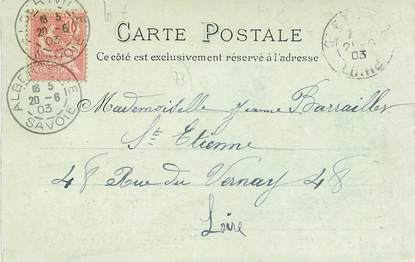 CARTE POSTALE
Ce côté est exclusivement réservé à l'adresse
ALBERTVILLE
18 5
20 -6
03
SAVOIE
ALBERTVILLE
18 5
20 -6
03
SAVOIE
03
LOIRE
Mademoiselle Jeanne Barrailler
St Etienne
48 Rue du Vernay 48
Loire